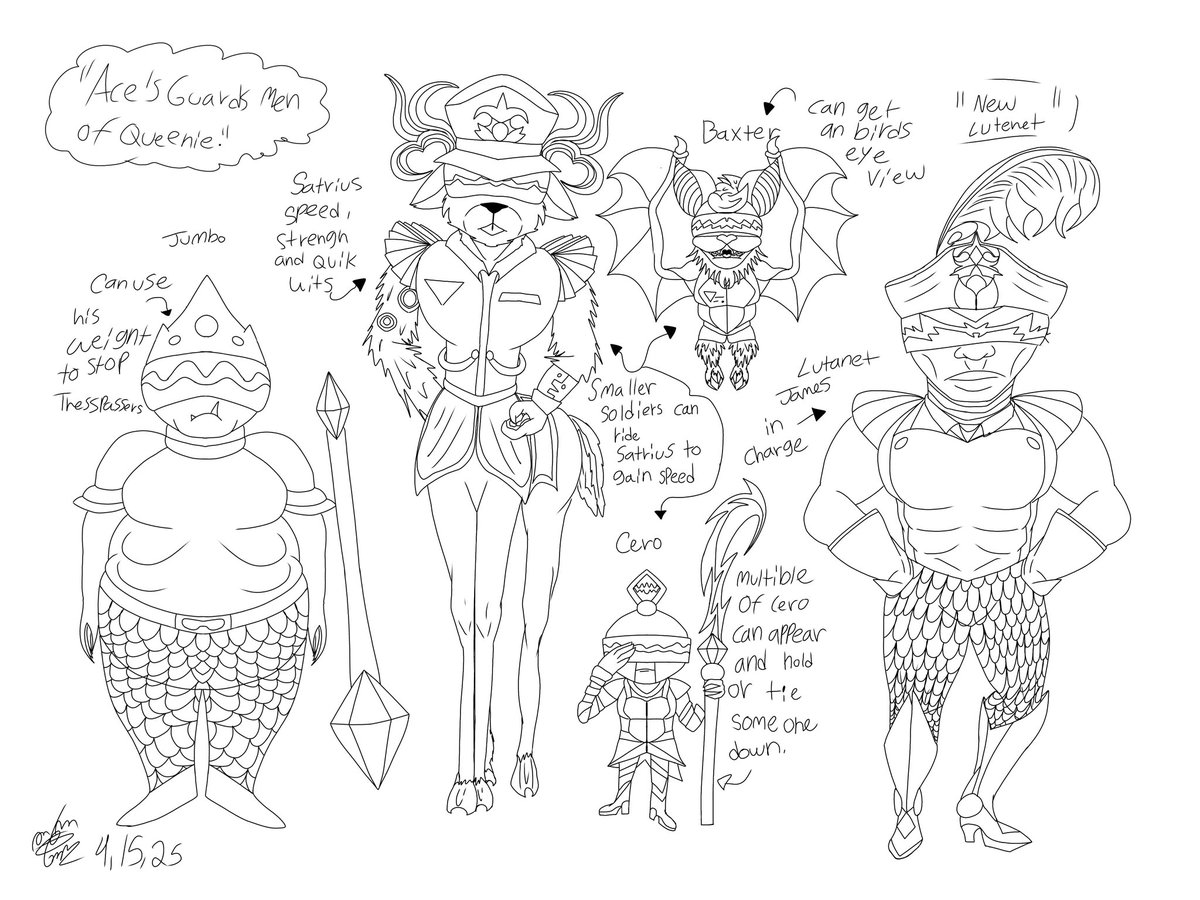 "Ace's Guards Men
of Queenie."
Jumbo
Can use
his
weight
to stop
Thesspassers
Satrius
speed,
strengh
and Quik
wits
Baxter
can get
an birds
eye
view
"New
Lutenet"
Smaller
soldiers can
ride
Satrius to
gain speed
Lutanet
James
in
charge
Cero
multible
of Cero
can appear
and hold
or tie
some one
down.
4,15,25